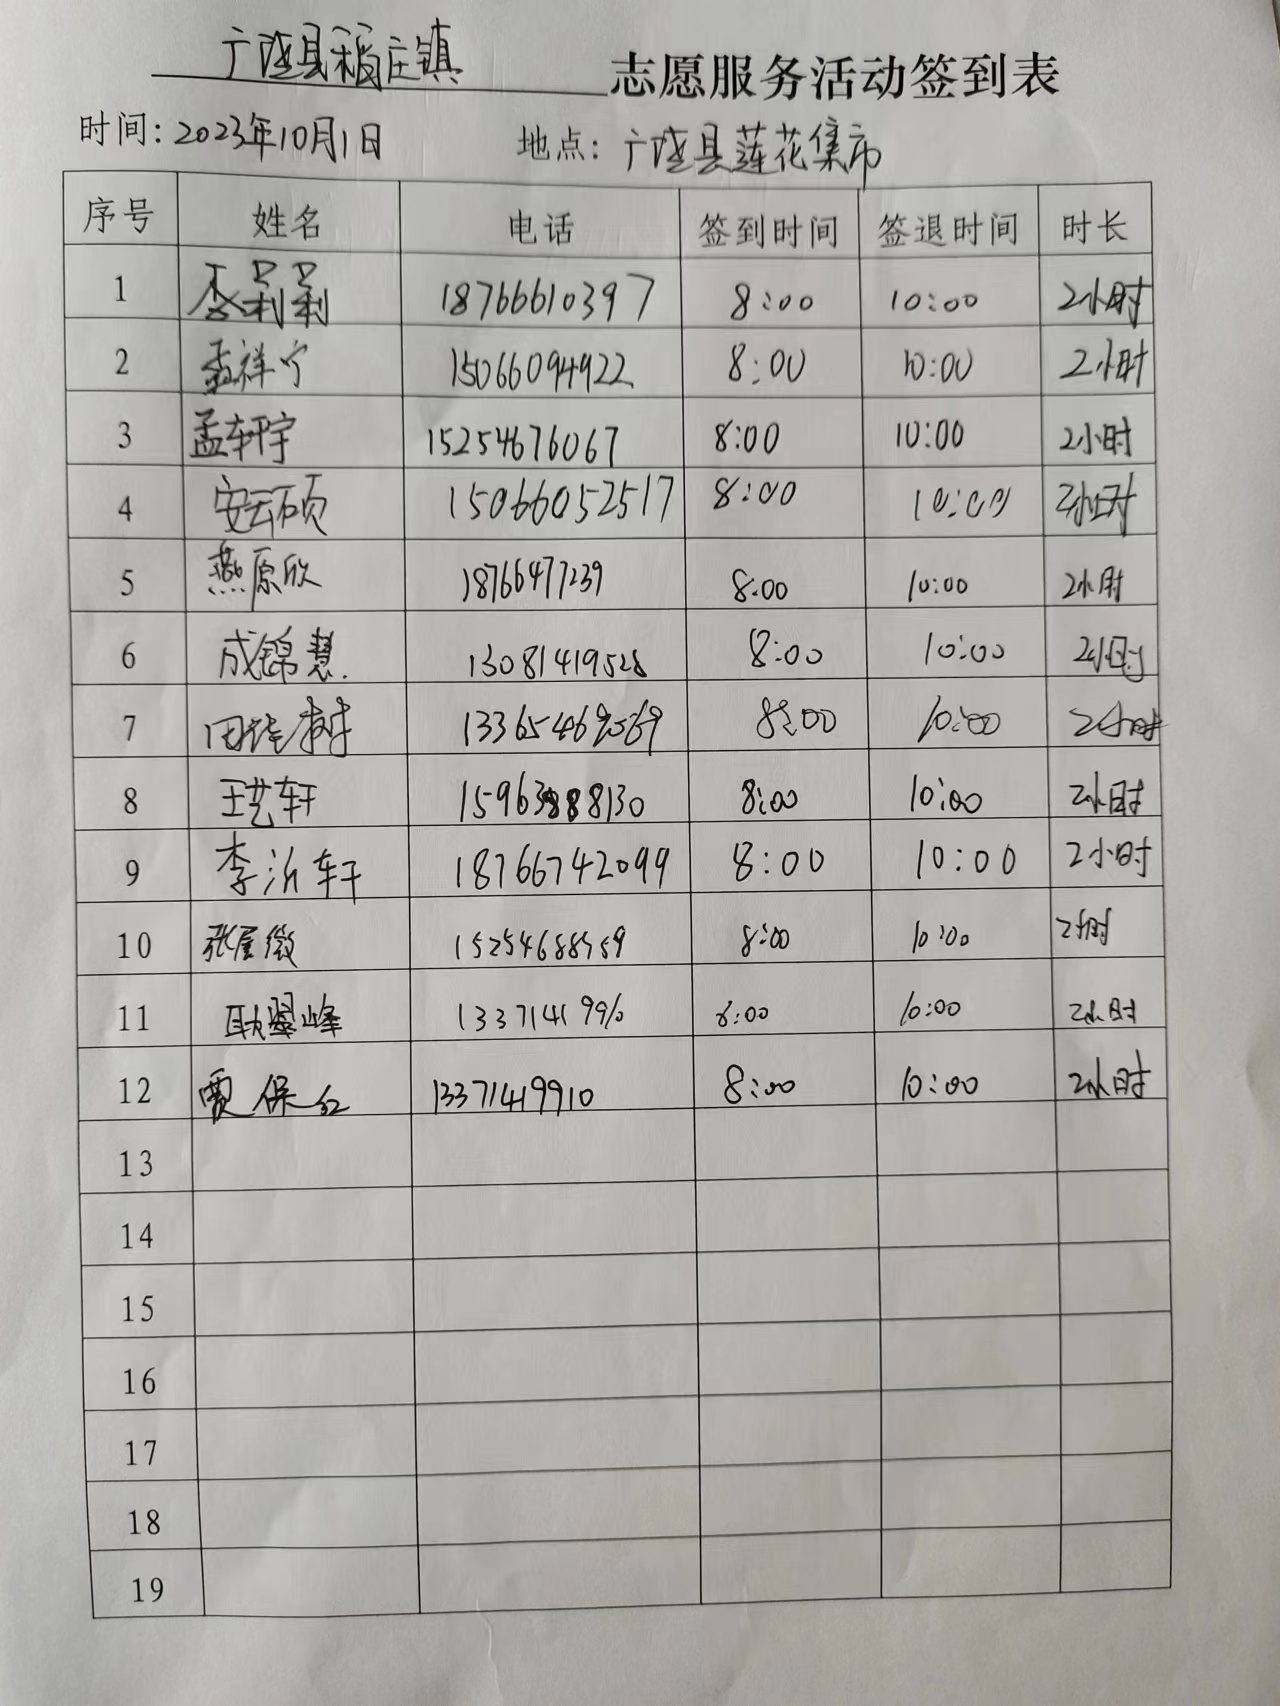 广饶县稻庄镇 志愿服务活动签到表
时间：2023年10月1日 地点：广饶县莲花集市
序号 姓名 电话 签到时间 签退时间 时长
1 18766610397 8:00 10:00 2小时
2 孟祥宁 15066094922 8:00 10:00 2小时
3 孟轩宇 15254676067 8:00 10:00 2小时
4 安云硕 15066052517 8:00 10:00 2小时
5 燕原欣 18766477239 8:00 10:00 2小时
6 成锦慧. 13081419528 8:00 10:00 2小时
7 8:00 10:00 2小时
8 王艺轩 15963888130 8:00 10:00 2小时
9 李沂轩 18766742099 8:00 10:00 2小时
10 8:00 10:00 2小时
11 8:00 10:00 2小时
12 贾保红 13371419910 8:00 10:00 2小时
13
14
15
16
17
18
19